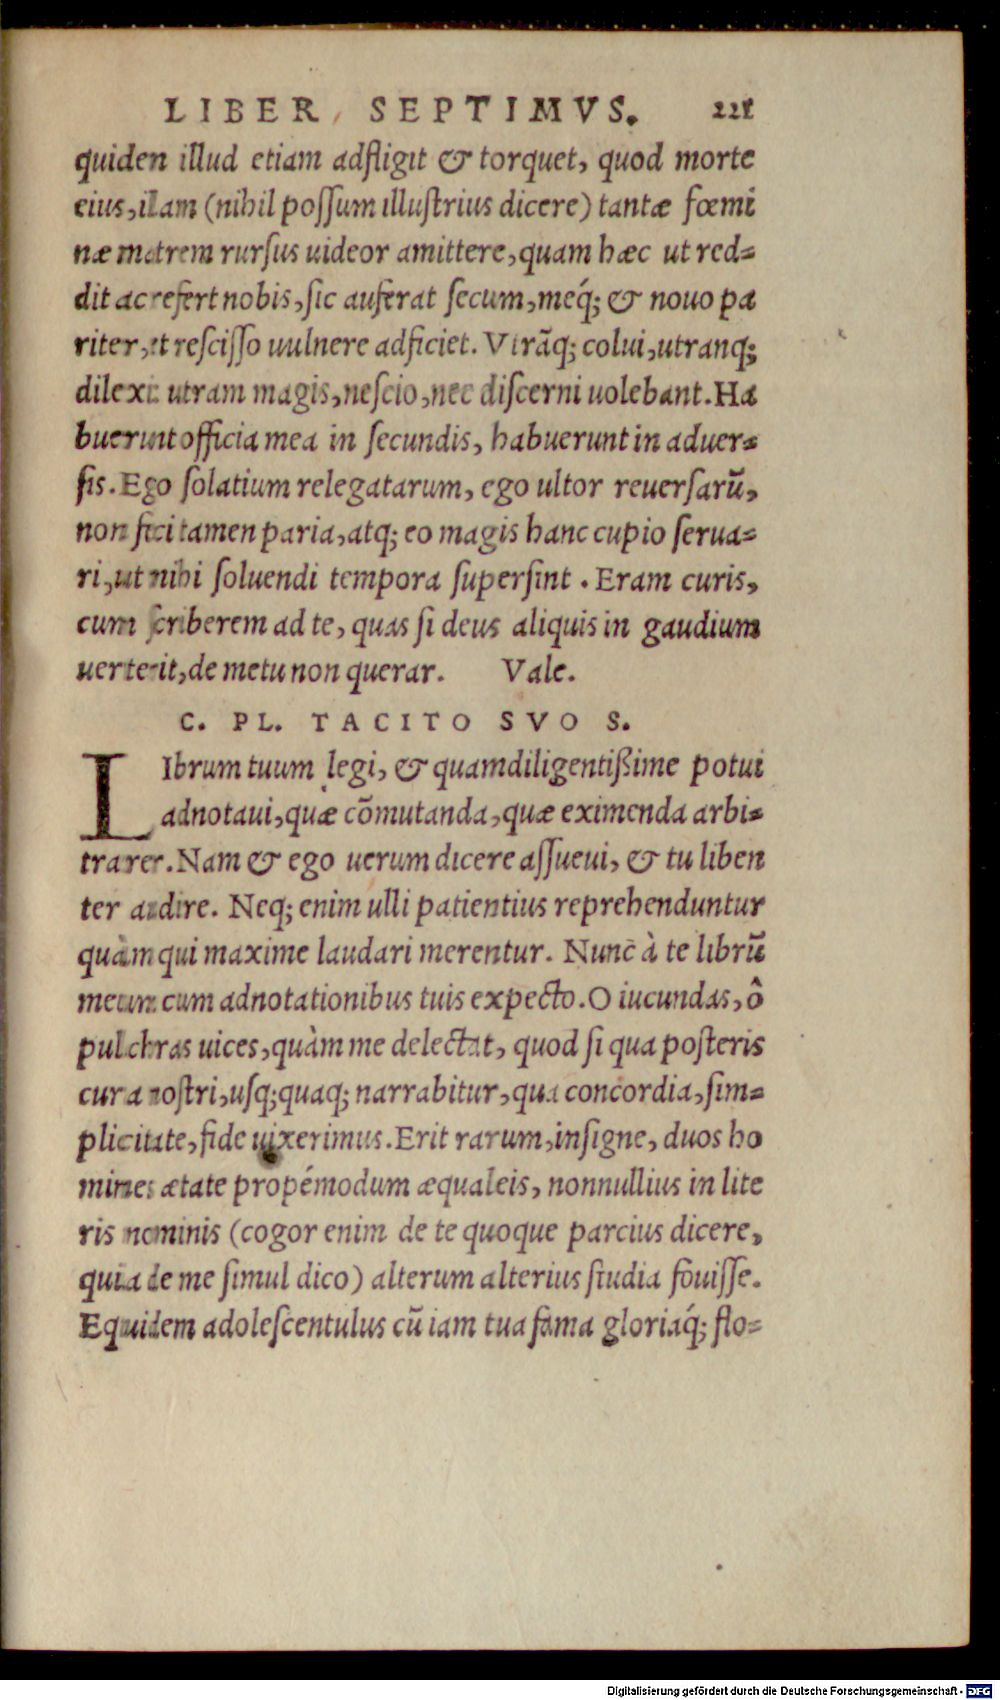 LIBER SEPTIMVS. 221
quiden illud etiam adfligit & torquet, quod morte
eius, illam (nihil possum illustrius dicere) tantæ fœmi
næ matrem rursus uideor amittere, quam hæc ut red-
dit ac refert nobis, sic auferat secum, meq́; & nouo pa
riter, et rescisso uulnere adficiet. Vtrāq; colui, utranq;
dilexi: utram magis, nescio, nec discerni uolebant. Ha
buerunt officia mea in secundis, habuerunt in aduer-
sis. Ego solatium relegatarum, ego ultor reuersarū,
non feci tamen paria, atq; eo magis hanc cupio serua-
ri, ut mihi soluendi tempora supersint. Eram curis,
cum scriberem ad te, quas si deus aliquis in gaudium
uerterit, de metu non querar. Vale.
C. PL. TACITO SVO S.
LIbrum tuum legi, & quamdiligentißime potui
adnotaui, quæ cōmutanda, quæ eximenda arbi-
trarer. Nam & ego uerum dicere assueui, & tu liben
ter audire. Neq; enim ulli patientius reprehenduntur
quàm qui maxime laudari merentur. Nunc à te librū
meum cum adnotationibus tuis expecto. O iucundas, ô
pulchras uices, quàm me delectat, quod si qua posteris
cura nostri, usq;quaq; narrabitur, qua concordia, sim-
plicitate, fide uixerimus. Erit rarum, insigne, duos ho
mines ætate propémodum æqualeis, nonnullius in lite
ris nominis (cogor enim de te quoque parcius dicere,
quia de me simul dico) alterum alterius studia fouisse.
Equidem adolescentulus cū iam tua fama gloriaq́; flo-
Digitalisierung gefördert durch die Deutsche Forschungsgemeinschaft - DFG